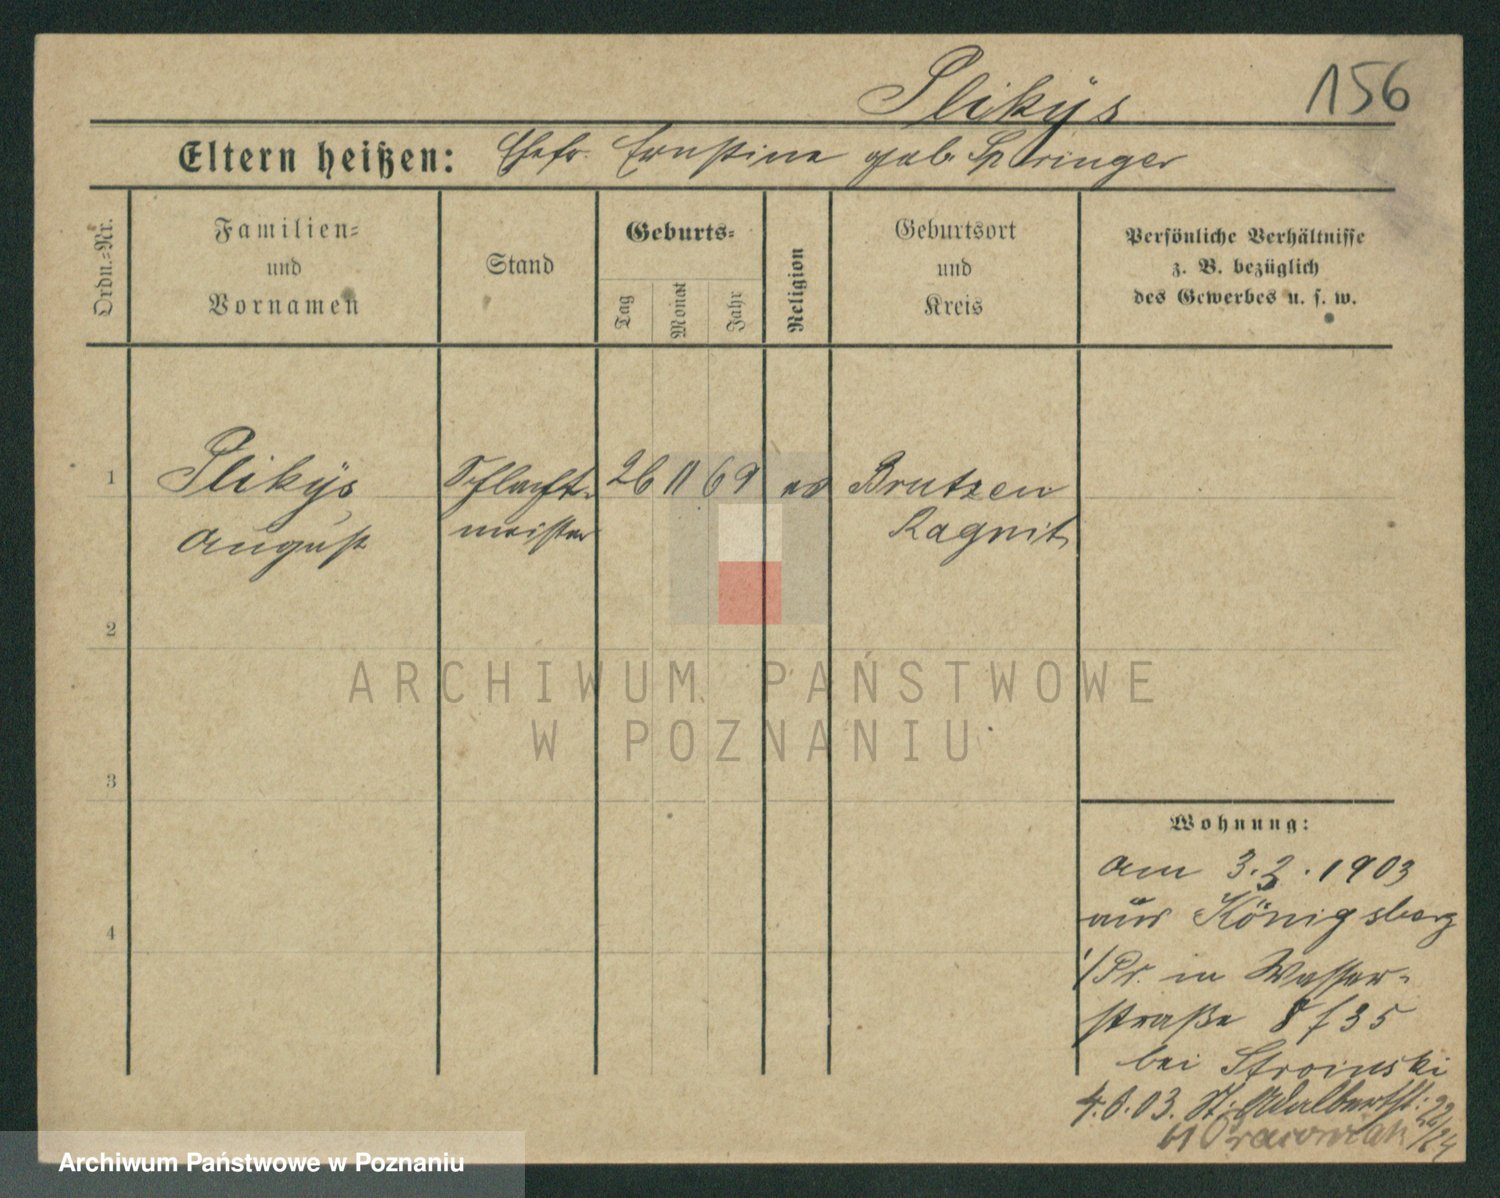 Plikÿs
156
Eltern heißen: Ehefr. Ernstine geb. Springer
Ordn.-Nr.
Familien-
und
Vornamen
Stand
Geburts-
Tag
Monat
Jahr
Religion
Geburtsort
und
Kreis
Persönliche Verhältnisse
z. B. bezüglich
des Gewerbes u. s. w.
1
Plikÿs
August
Schlacht-
meister
26 11 69
ev
Brutzen
Ragnit
2
3
4
ARCHIWUM PAŃSTWOWE
W POZNANIU
Wohnung:
am 3.2.1903
aus Königsberg
i/Pr. in Wasser-
straße 8/35
bei Stroinski
4.6.03. St. Adalbertst. 22/24
bi
Archiwum Państwowe w Poznaniu